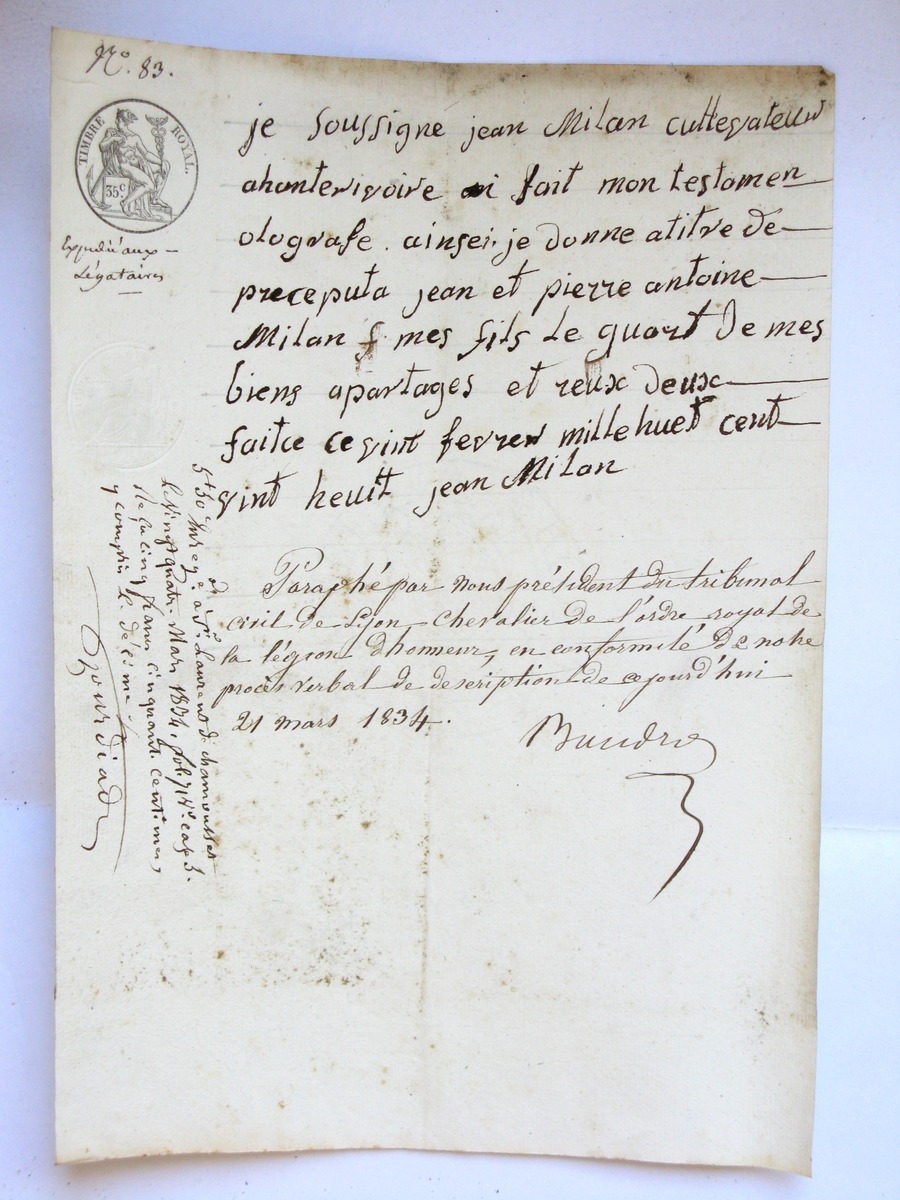 N.º 83.
TIMBRE ROYAL.
35 c
Expédié aux
Légataires
je soussigné jean Milan culltevateur
ahanterivoire ai fait mon testamen
olografe. ainsei. je donne atitre de
preceputa jean et pierre antoine
Milan f mes fils le quart de mes
biens apartages et reux deux
faitce ce vint fevrer mille huet cent
vint heuit jean Milan
Paraphé par nous président du tribunal
civil de Lyon Chevalier de l'ordre royal de
la légion d'honneur, en conformité de notre
procès verbal de description de cejourd'hui
21 mars 1834.
5f 50c Enregé. à St Laurent de chamousset
Le vingt quatre Mars 1834, fol. 71 Vo. case 3.
cinq francs cinquante centimes,
y compris le décime